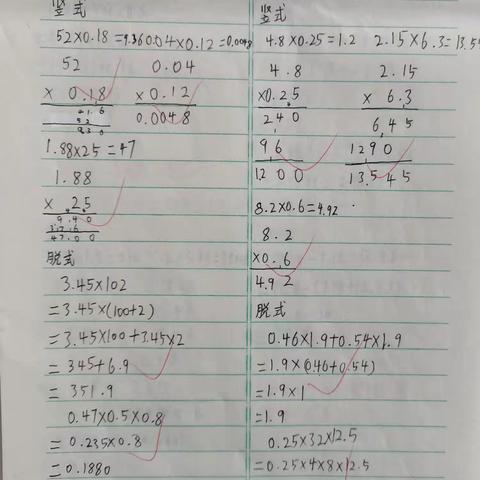 竖式
52×0.18=9.36 0.04×0.12=0.0048
52
× 0.18
9.36
0.04
×0.12
0.0048
1.88×25=47
1.88
× 25
9.40
37.6
47.00
脱式
3.45×102
=3.45×(100+2)
=3.45×100+3.45×2
=345+6.9
=351.9
0.47×0.5×0.8
=0.235×0.8
=0.1880
竖式
4.8×0.25=1.2 2.15×6.3=13.54
4.8
×0.25
240
96
1200
2.15
× 6.3
6.45
1290
13.545
8.2×0.6=4.92
8.2
×0.6
4.92
脱式
0.46×1.9+0.54×1.9
=1.9×(0.46+0.54)
=1.9×1
=1.9
0.25×32×12.5
=0.25×4×8×12.5